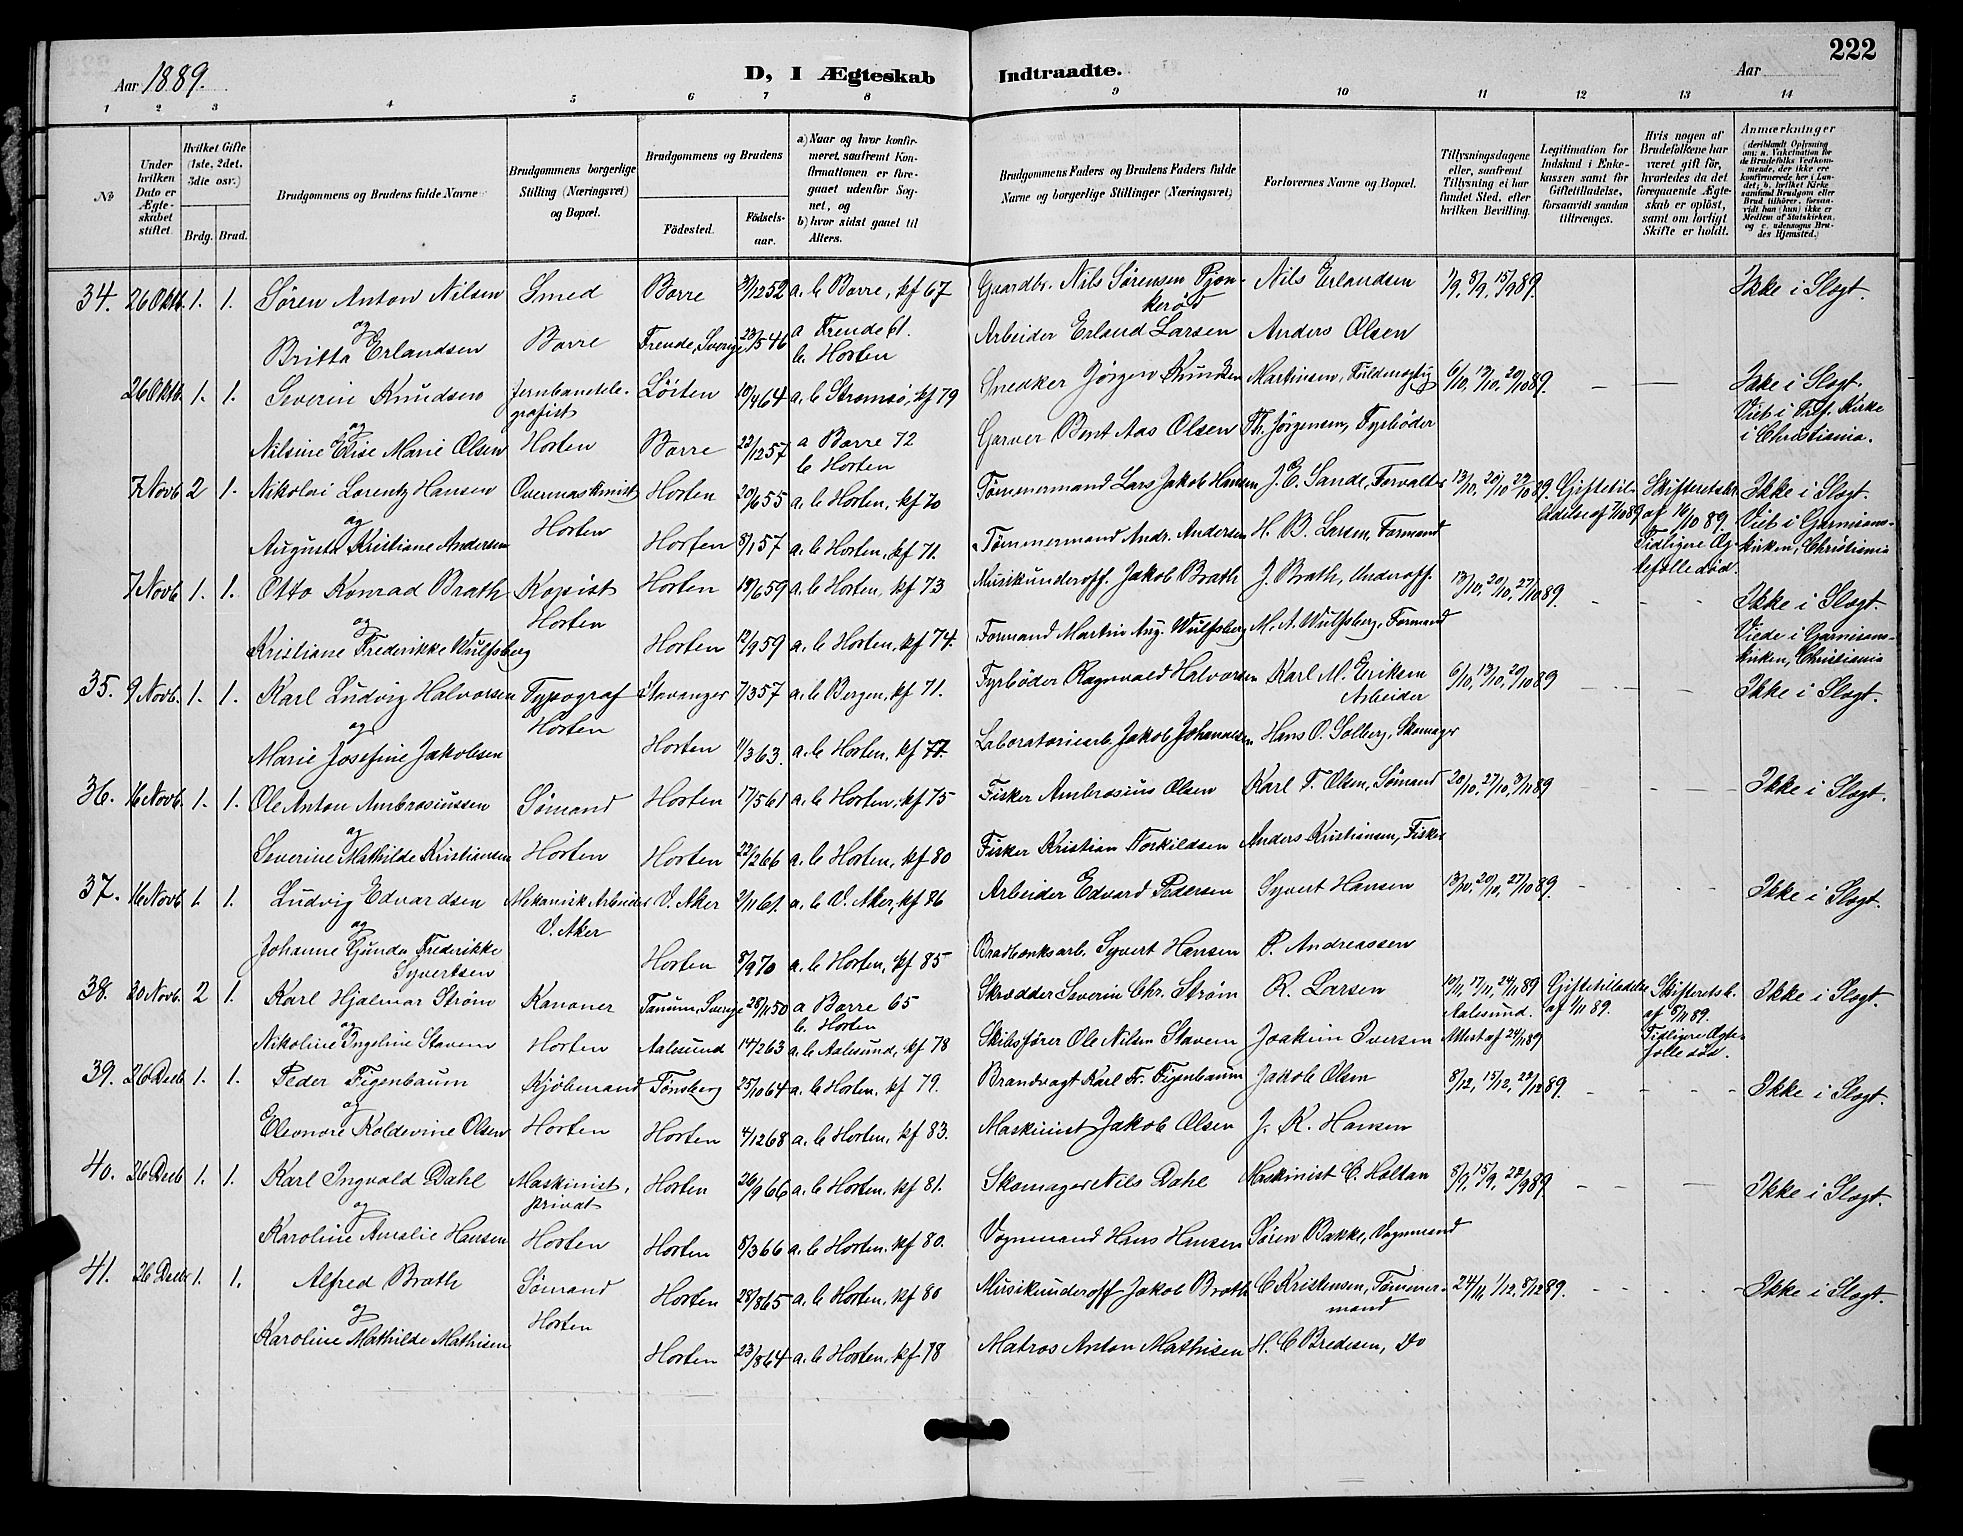 Aar 1889.
D, I Ægteskab Indtraadte.
Aar
222
1 2 3 4 5 6 7 8 9 10 11 12 13 14
№
Under hvilken Dato er Ægteskabet stiftet.
Hvilket Gifte (1ste, 2det, 3die osv.)
Brdg. Brud.
Brudgommens og Brudens fulde Navne
Brudgommens borgerlige Stilling (Næringsvei) og Bopæl.
Brudgommens og Brudens
Födested.
Födselsaar.
a) Naar og hvor konfirmeret, saafremt Konfirmationen er foregaaet udenför Sognet, og
b) hvor sidst gaaet til Alters.
Brudgommens Faders og Brudens Faders fulde Navne og borgerlige Stillinger (Næringsvei)
Forlovernes Navne og Bopæl.
Tillysningsdagene eller, saafremt Tillysning ei har fundet Sted, efter hvilken Bevilling.
Legitimation for Indskud i Enkekassen samt for Giftetilladelse, forsaavidt saadan tiltrænges.
Hvis nogen af Brudefolkene har været gift för, hvorledes da det foregaaende Ægteskab er oplöst, samt om lovligt Skifte er holdt.
Anmærkninger (deriblandt Oplysning om: a. Vakcination for de Brudefolks Vedkommende, der ikke ere konfirmerede her i Landet; b. hvilket Kirkesamfund Brudgom eller Brud tilhörer, forsaavidt han (hun) ikke er Medlem af Statskirken, og c. udensogns Brudes Hjemsted.)
34. 26 Oktb. 1. 1. Sören Anton Nilsen Smed Borre 52 a. b Borre, kf 67 Gaardbr. Nils Sörensen Pjonkeröd Nils Erlandsen 1/9, 8/9, 15/9 89. Ikke i Slægt.
og
Britta Erlandsen Borre Sverige 46 a 61. b. Horten Arbeider Erland Larsen Anders Olsen
26 Oktb. 1. 1. Severin Knudsen Jernbanetelegrafist Löiten 10/4 64 a. b Strömsö, kf 79 Snedker Jörgen Knudsen Martinsen, Fuldmægtig 6/10, 13/10, 20/10 89. — — Ikke i Slægt. Viet i Tref. Kirke i Christiania.
og
Nilsine Elise Marie Olsen Horten Borre 22/12 57 a Borre 72 b Horten Garver Bent Aas Olsen Th. Jörgensen, Fyrböder
7 Novb. 2 1. Nikolai Lorentz Hansen Overmaskinist Horten 20/6 55 a. b Horten, kf 70 Tömmermand Lars Jakob Hansen J. E. Sande, Forvalter 13/10, 20/10 27/10 89. Giftetilladelse af 7/10 89 Skifteretsbr. af 16/10 89. Tidligere Ægtefælle död. Ikke i Slægt. Viet i Garnisonskirken, Christiania
og
Augusta Kristiane Andersen Horten Horten 8/1 57 a. b Horten, kf 71. Tömmermand Andr. Andersen H. B. Larsen, Formand
7 Novb. 1. 1. Otto Konrad Brath Kopist Horten 19/6 59 a. b Horten, kf 73 Musikunderoff. Jakob Brath J. Brath, Underoff. 13/10, 20/10, 27/10 89. - - - Ikke i Slægt. Viede i Garnisonskirken, Christiania
og
Kristiane Frederikke Wulfsberg Horten Horten 12/9 59 a. b Horten, kf 74. Formand Martin Aug. Wulfsberg M. A. Wulfsberg, Formand
35. 9 Novb. 1. 1. Karl Ludvig Halvorsen Typograf Stavanger 7/3 57 a. b Bergen, kf 71. Fyrböder Ragnvald Halvorsen Karl M. Eriksen Arbeider 6/10, 13/10, 20/10 89 - - Ikke i Slægt.
og
Marie Josefine Jakobsen Horten Horten 63. a. b Horten, kf 77. Laboratoriearb. Jakob Johannesen Hans O. Solberg, Skomager
36. 16 Novb. 1. 1. Ole Anton Ambrosiussen Sömand Horten 17/5 61 a. b Horten, kf 75 Fisker Ambrosius Olsen Karl T. Olsen, Sömand 20/10, 27/10, 3/11 89 - - - Ikke i Slægt.
og
Severine Mathilde Kristiansen Horten Horten 22/2 66 a. b Horten, kf 80 Fisker Kristian Torkildsen Anders Kristiansen, Fisker
37. 16 Novb 1. 1. Ludvig Edvardsen Mekanisk Arbeider V. Aker 2/11 61. a. b V. Aker, kf 86 Arbeider Edvard Pedersen Syvert Hansen 13/10, 20/10, 27/10 89. - - - Ikke i Slægt.
og
Johanne Gunda Frederikke Syvertsen V. Aker Horten 8/9 70 a. b Horten, kf 85 Syvert Hansen P. Andreassen
38. 20 Novb. 2 1. Karl Hjalmar Ström Kanoner Tanum, Sverige 28/11 50 a Borre 65 b. Horten Skrædder Severin Chr. Ström R. Larsen 10/11, 17/11, 24/11 89 Aalesund. Giftetilladelse af 1/11 89. Skifteretsb. af 8/11 89. Tidligere Ægtefælle död. Ikke i Slægt.
og
Nikoline Ingeline Stavem Horten Aalesund 14/2 63 a. b Aalesund, kf 78 Skibsförer Ole Nilsen Stavem Joakim Iversen Attest af 24/11 89
39. 26 Decb. 1. 1. Peder Figenbaum Kjöbmand Tönsberg 25/10 64 a. b Horten. kf 79. Brandvagt Karl Fr. Figenbaum Jakob Olsen 8/12, 15/12, 22/12 89. - - - Ikke i Slægt.
og
Eleonore Koldevine Olsen Horten Horten 4/12 68 a. b Horten, kf 83. Maskinist Jakob Olsen J. K. Hansen
40. 26 Decb 1. 1. Karl Ingvald Dahl Maskinist, privat Horten 26/9 66 a. b Horten, kf 81. Skomager Nils Dahl Maskinist C. Holtan 8/9, 15/9, 22/9 89 - - - Ikke i Slægt.
og
Karoline Amalie Hansen Horten Horten 8/3 66 a. b Horten, kf 80. Vognmand Hans Hansen Sören Bakke, Vognmand
41. 26 Decb 1. 1. Alfred Brath Sömand Horten 28/8 65 a. b Horten, kf 80 Musikunderoff Jakob Brath C Kristensen, Tömmermand 24/11, 1/12, 8/12 89. - - - Ikke i Slægt.
og
Karoline Mathilde Mathisen Horten Horten 23/8 64 a. b Horten, kf 78 Matros Anton Mathisen H. C Bredesen, Do